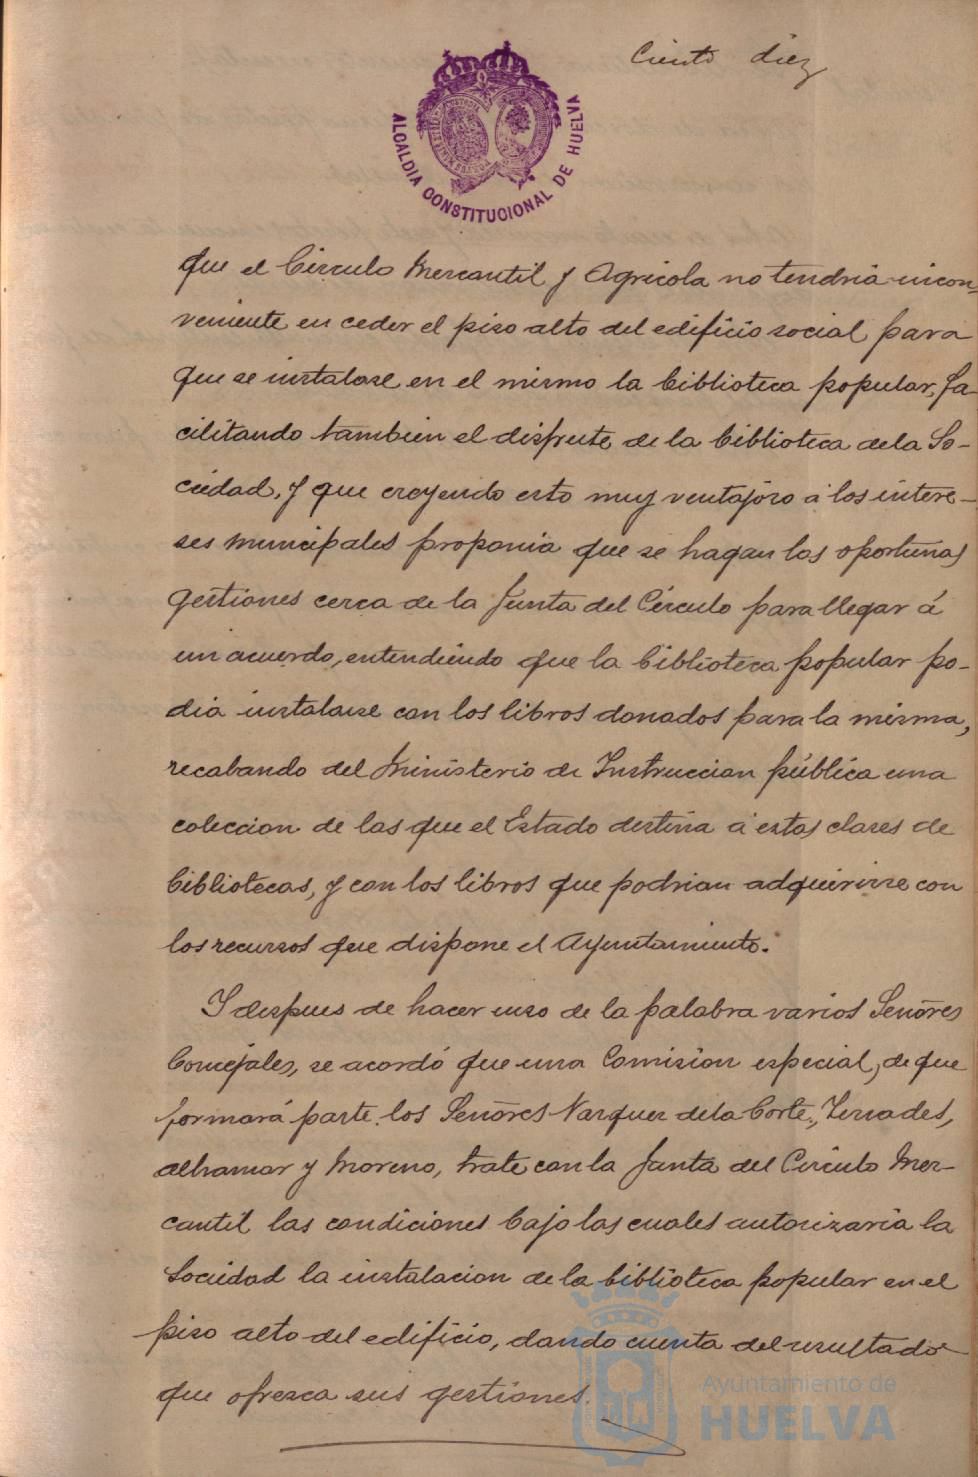 Ciento diez
ALCALDIA CONSTITUCIONAL DE HUELVA
que el Circulo Mercantil y Agricola no tendria incon-
veniente en ceder el piso alto del edificio social para
que se instalase en el mismo la biblioteca popular, fa-
cilitando tambien el disfrute de la biblioteca de la So-
ciedad, y que creyendo esto muy ventajoso á los intere-
ses municipales proponia que se hagan las oportunas
gestiones cerca de la Junta del Círculo para llegar á
un acuerdo, entendiendo que la biblioteca popular po-
dia instalarse con los libros donados para la misma,
recabando del Ministerio de Instruccion pública una
coleccion de las que el Estado destina á estas clases de
bibliotecas, y con los libros que podrian adquirirse con
los recursos que dispone el Ayuntamiento.
Y despues de hacer uso de la palabra varios Señores
Concejales, se acordó que una Comision especial, de que
formará parte los Señores Vazquez de la Corte, Terrades,
Alhamar y Moreno, trate con la Junta del Circulo Mer-
cantil las condiciones bajo las cuales autorizaria la
Sociedad la instalacion de la biblioteca popular en el
piso alto del edificio, dando cuenta del resultado
que ofrezca sus gestiones.
Ayuntamiento de
HUELVA